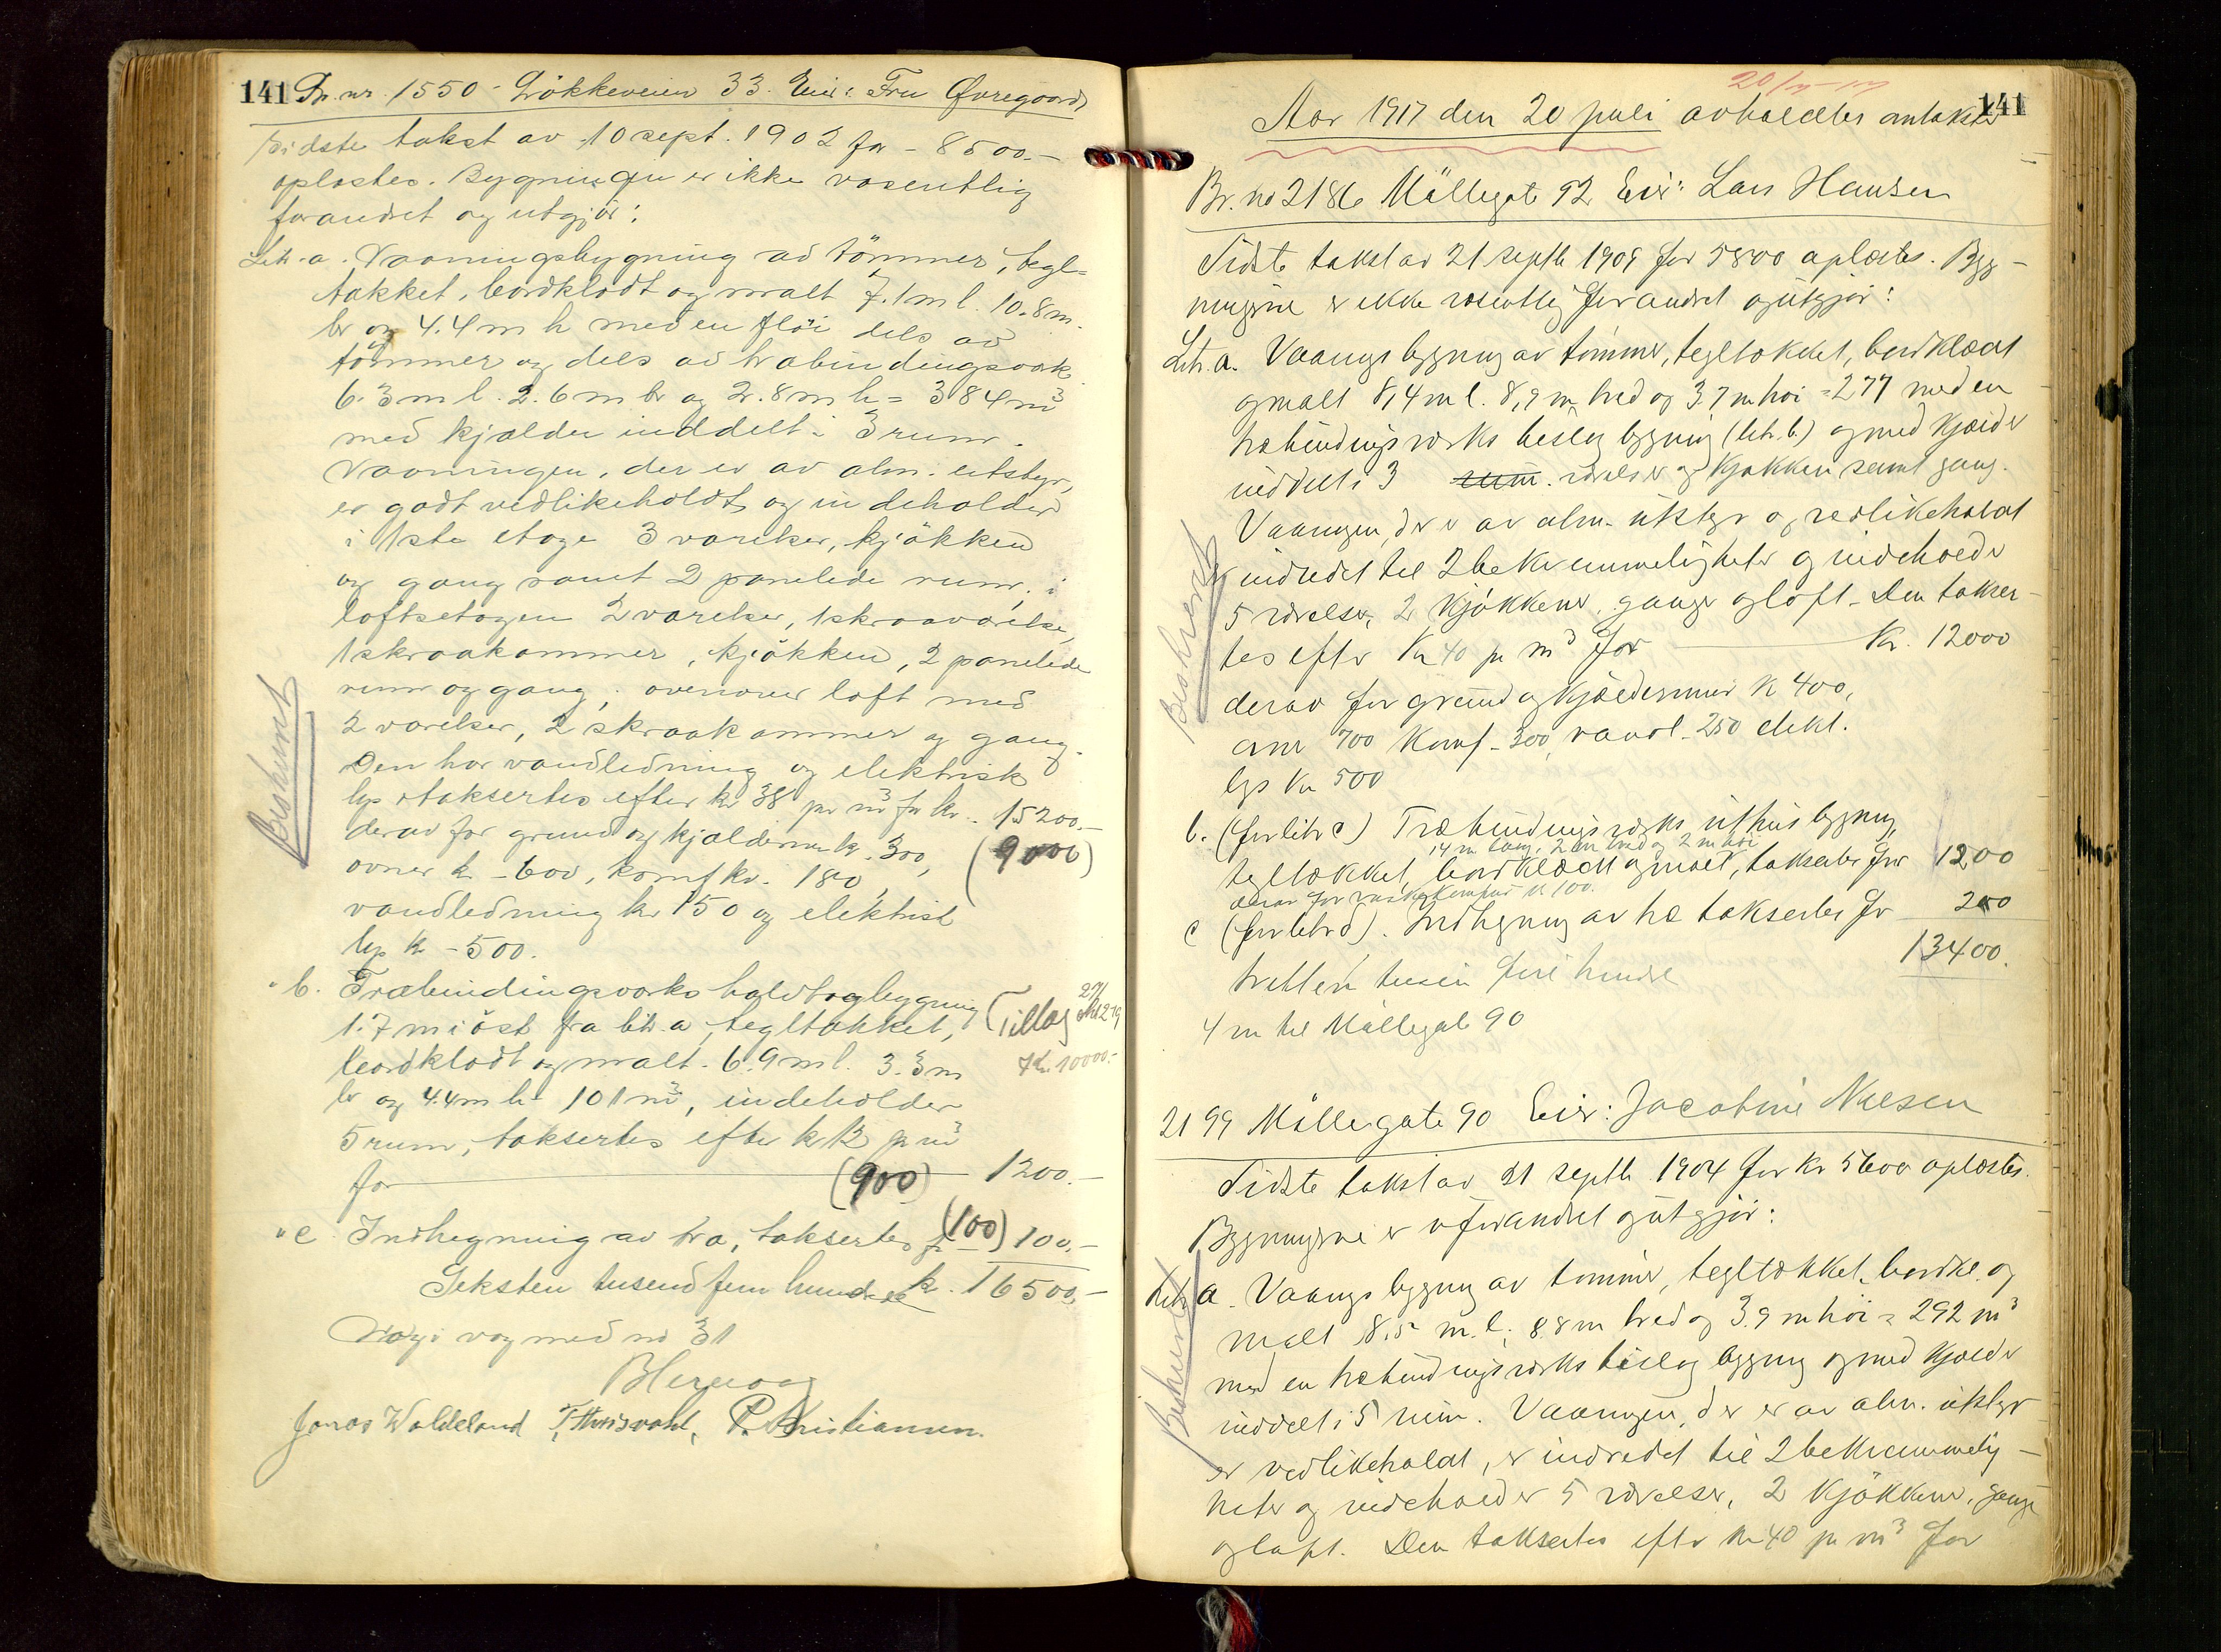 141 Br. nr. 1550 - Lökkeveien 33. Eier: Fru Øvregaard
Sidste takst av 10 sept. 1902 for - 8500.-
oplæstes. Bygningen er ikke væsentlig
forandret og utgjör:
Litr. a. Vaaningsbygning av tömmer, tegl-
tækket, bordklædt og malt 7.1 m l. 10.8 m.
br og 4.4 m h med en flöi dels av
tömmer og dels av træbindingsværk
6.3 m l. 2.6 m br og 2.8 m h = 384 m³
med kjælder inddelt i 3 rum.
Vaaningen, der er av alm. utstyr,
er godt vedlikeholdt og indeholder
i 1ste etage 3 værelser, kjökken
og gang samt 2 panelede rum; i
loftsetagen 2 værelser, 1 skraaværelse,
1 skraakammer, kjökken, 2 panelede
rum og gang; ovenover loft med
2 værelser, 2 skraakammer og gang.
Den har vandledning og elektrisk
lys & taksertes efter kr 38 pr m³ for kr. 15200.-
(9000)
derav for grund og kjældermur kr. 300,
ovner kr - 600, komf kr. 180,
vandledning kr 150 og elektrisk
lys kr - 500.
Beskrevet
" b. Træbindingsværks halvtagbygning
1.7 m i öst fra litr. a, tegltækket,
(Tillæg 271 279
Kr. 10000.-
bordklædt og malt. 6.9 m l. 3.3 m
br og 4.4 m h = 101 m³, indeholder
5 rum, taksertes efter kr 12 pr m³
for (900) 1200.-
" c Indhegning av træ, taksertes for (100) 100.-
Seksten tusend fem hundrede kr. 16500.-
Væg i væg med no 31
Jonas Waldeland T. Thorsvahl, P. Kristiansen.
20/7-17
141
Aar 1917 den 20 juli avholdtes omtakster
Br. no 2186 Möllegate 92 Eier: Lars Hansen
Sidste takst av 21 septb 1909 for 5800 oplæstes. Byg-
ningene er ikke væsentlig forandret og utgjör:
Litr. a. Vaanings bygning av tömmer, tegltækket, bordklædt
og malt 8,4 m l. 8,9 m bred og 3,7 m höi = 277 med en
træbindingsværks beslag bygning (litr. b.) og med kjælder
inddelt i 3 rum. værelser og kjökken samt gang.
Vaaningen, der er av alm. utstyr og vedlikeholdt
er indredet til 2 bekvemmeligheter og indeholder
5 værelser, 2 kjökkener, ganger og loft. Den takser-
tes efter Kr 40 pr m³ for Kr. 12000
derav for grund og kjældermur K 400,
ovner 700 Komf. 300, vandl. 250 elekt.
lys Kr 500
Beskrevet
b. (för litr c) Træbindingsværks uthusbygning,
14 m lang, 2 m bred og 2 m höi
tegltækket, bordklædt og malt, taksertes for 1200
derav for vask komfur K 100.
c (för litr d). Indhegning av træ taksertes for 200
13400.
tretten tusen fire hundre
4 m til Möllegate 90
2199 Möllegate 90 Eier: Jacobine Nilsen
Sidste takst av 21 septb. 1904 for Kr 5600 oplæstes.
Bygningene er uforandret og utgjör:
Litr a. Vaanings bygning av tömmer, tegltækket, bordkl. og
malt 8,5 m. l; 8.8 m bred og 3.9 m höi = 292 m³
med en træbindingsværks beslag bygning og med kjælder
inddelt i 5 rum. Vaaningen, der er av alm. utstyr
er vedlikeholdt, er indredet til 2 bekvemmelig-
heter og indeholder 5 værelser, 2 kjökkener, gange
og loft. Den taksertes efter Kr 40 pr m³ for
Beskrevet